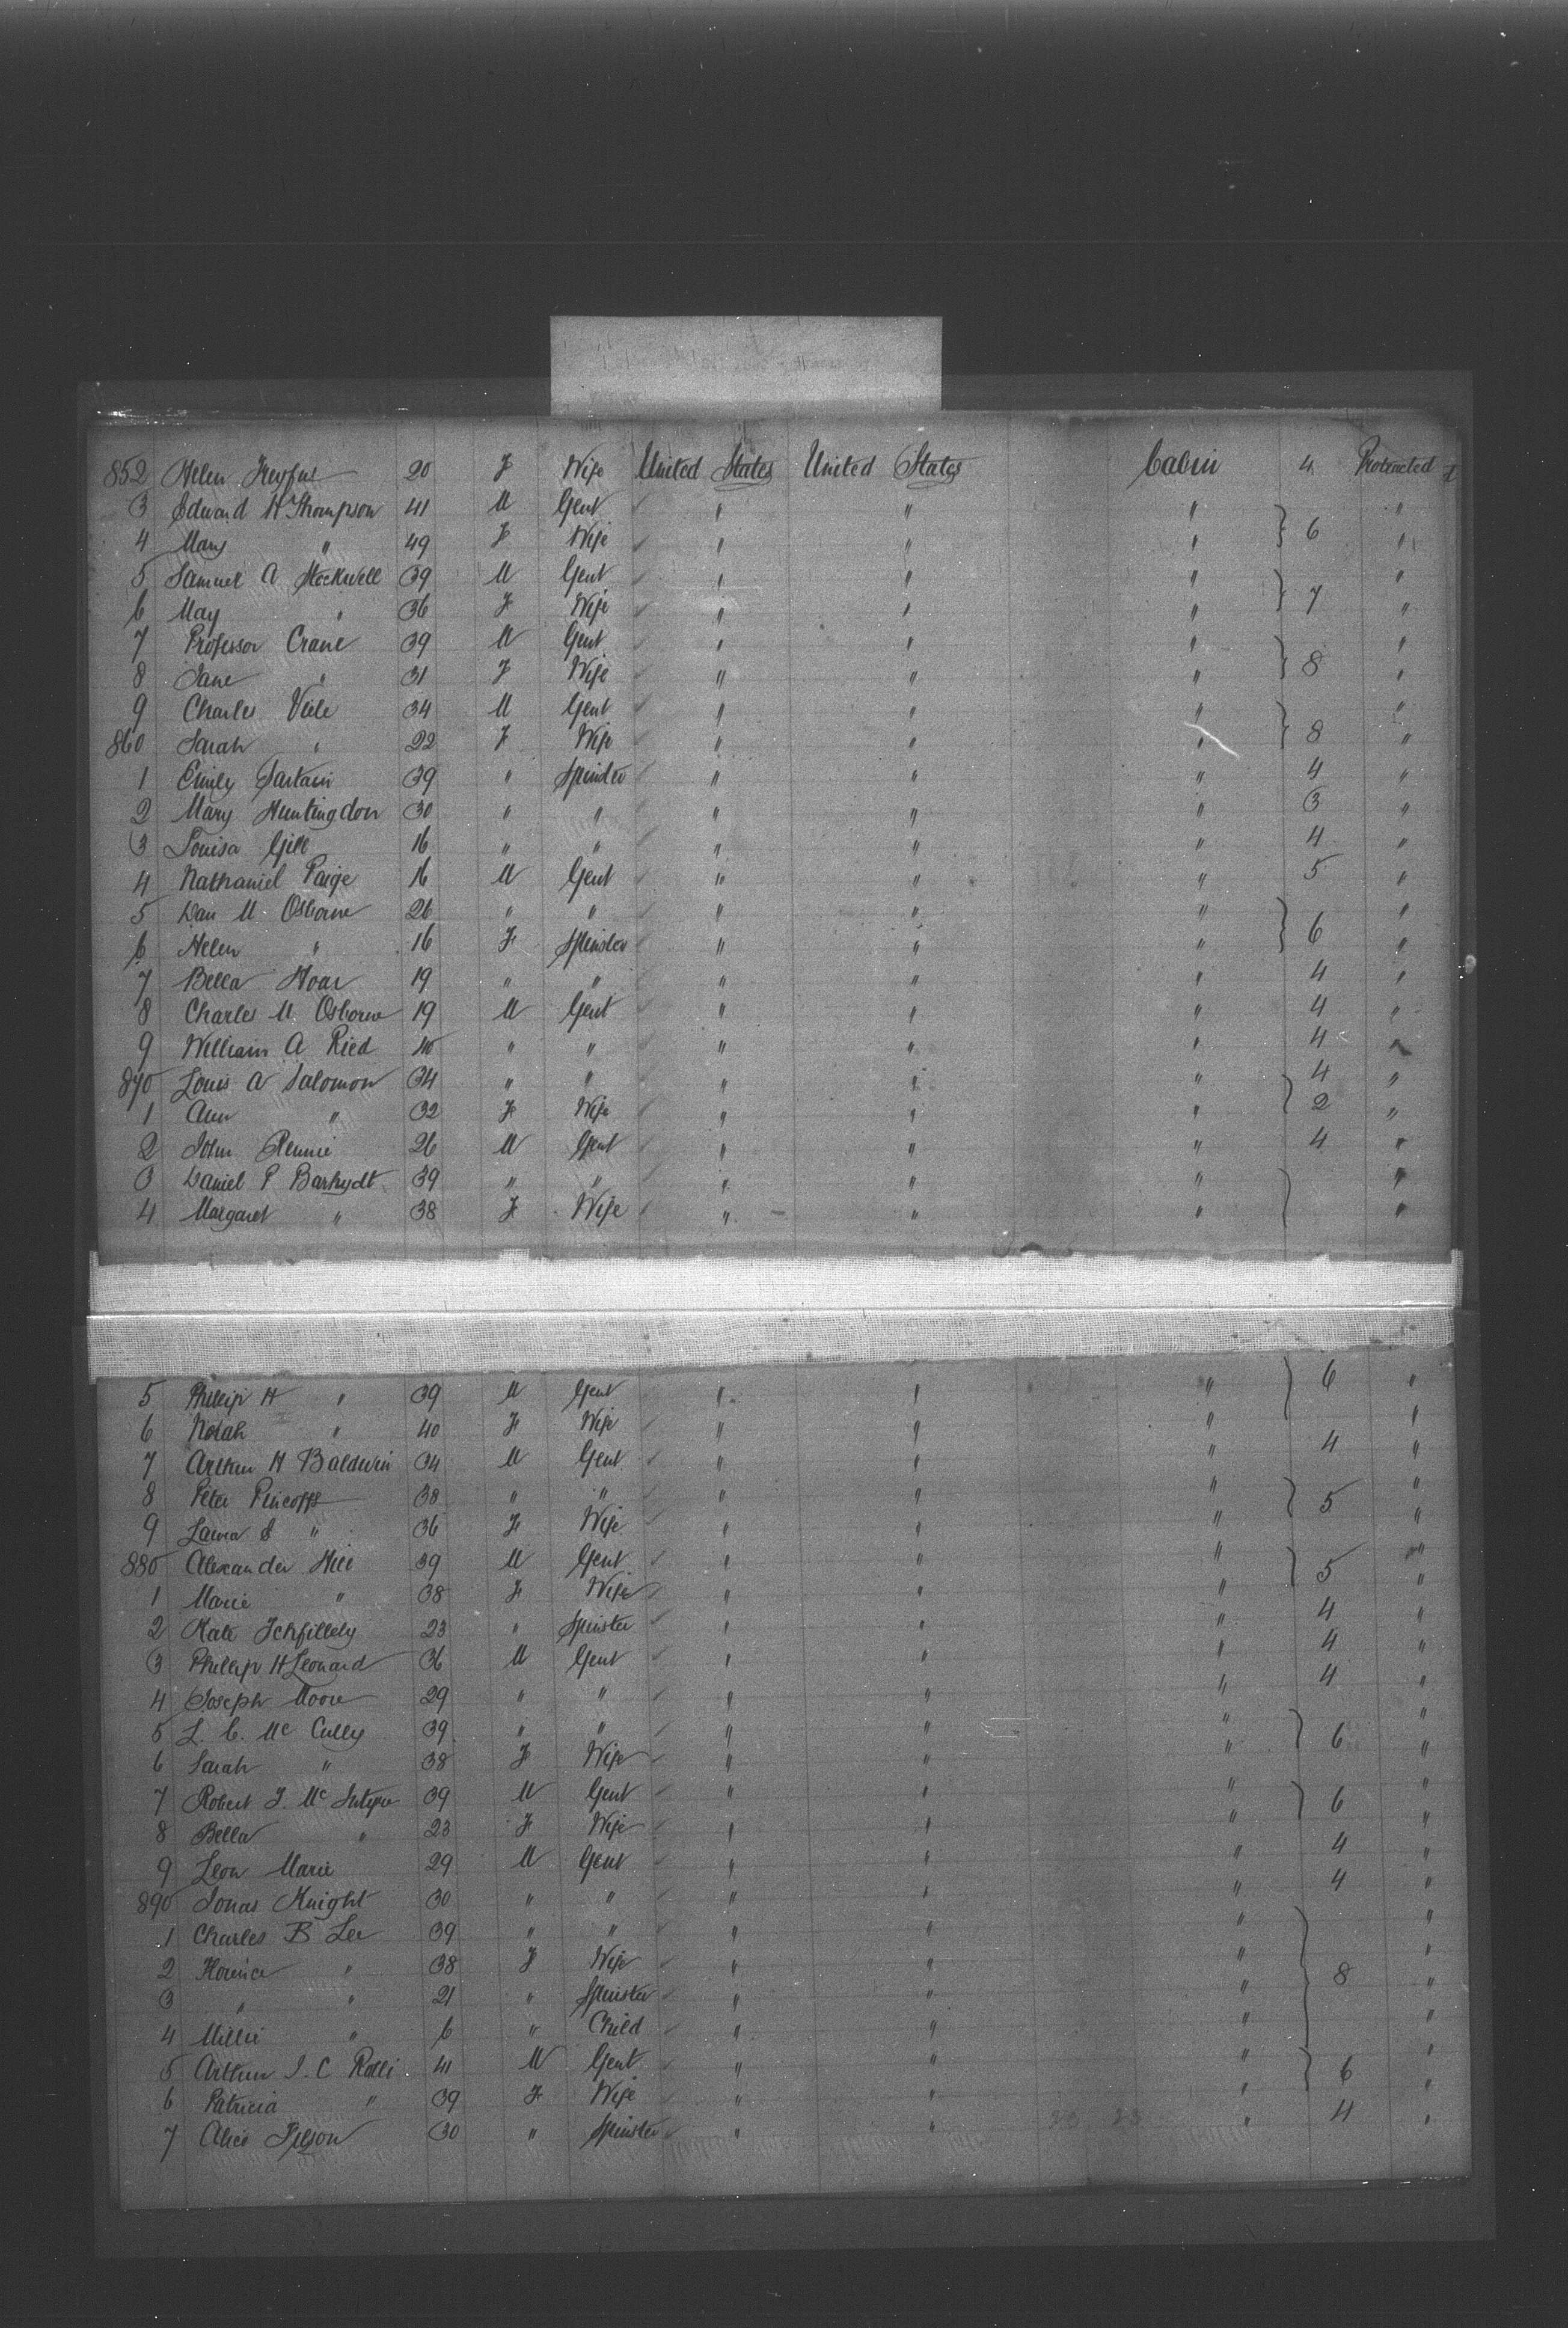 852 Helen 20 F Wife United States United States Cabin 4 Protracted
3 Edward H Thompson 41 M Gent " " " "
4 Mary " 49 F Wife " " " } 6 "
5 Samuel A Stockwell 39 M Gent " " " "
6 May " 36 F Wife " " " } 7 "
7 Professor Crane 39 M Gent " " " "
8 Jane " 31 F Wife " " " } 8 "
9 Charles Viele 34 M Gent " " " "
860 Sarah " 22 F Wife " " " } 8 "
1 Emily Sartain 39 " Spinster " " " 4 "
2 Mary Huntingdon 30 " " " " " 3 "
3 Louisa Gill 16 " " " " " 4 "
4 Nathaniel Paige 16 M Gent " " " 5 "
5 Dan M Osborne 26 " " " " " "
6 Helen " 16 F Spinster " " " } 6 "
7 Bella Hoar 19 " " " " " 4 "
8 Charles M Osborne 19 M Gent " " " 4 "
9 William A Ried " " " " " 4 "
870 Louis A Salomon 34 " " " " " 4 "
1 Ann " 32 F Wife " " " } 2 "
2 John Rennie 26 M Gent " " " 4 "
3 Daniel P Barhydt 39 " " " " " "
4 Margaret " 38 F Wife " " " } "
5 Phillip H " 39 M Gent " " " } 6 "
6 Norah " 40 F Wife " " " "
7 Arthur H Baldwin 34 M Gent " " " 4 "
8 Peter Pincoffs 38 " " " " " "
9 Laura S " 36 F Wife " " " } 5 "
880 Alexander Hill 39 M Gent " " " "
1 Marie " 38 F Wife " " " } 5 "
2 Kate 23 " Spinster " " " 4 "
3 Phillip H Leonard 36 M Gent " " " 4 "
4 Joseph Moore 29 " " " " " 4 "
5 L. C. Mc Cully 39 " " " " " "
6 Sarah " 38 F Wife " " " } 6 "
7 Robert J. Mc Intyre 39 M Gent " " " "
8 Bella " 23 F Wife " " " } 6 "
9 Leon Marie 29 M Gent " " " 4 "
890 Jonas Knight 30 " " " " " 4 "
1 Charles B Lee 39 " " " " " "
2 Florence " 38 F Wife " " " "
3 " " 21 " Spinster " " " } 8 "
4 Millie " 6 " Child " " " "
5 Arthur J. C Ralli 41 M Gent " " " "
6 Patricia " 39 F Wife " " " } 6 "
7 Alice 30 " Spinster " " " 4 "